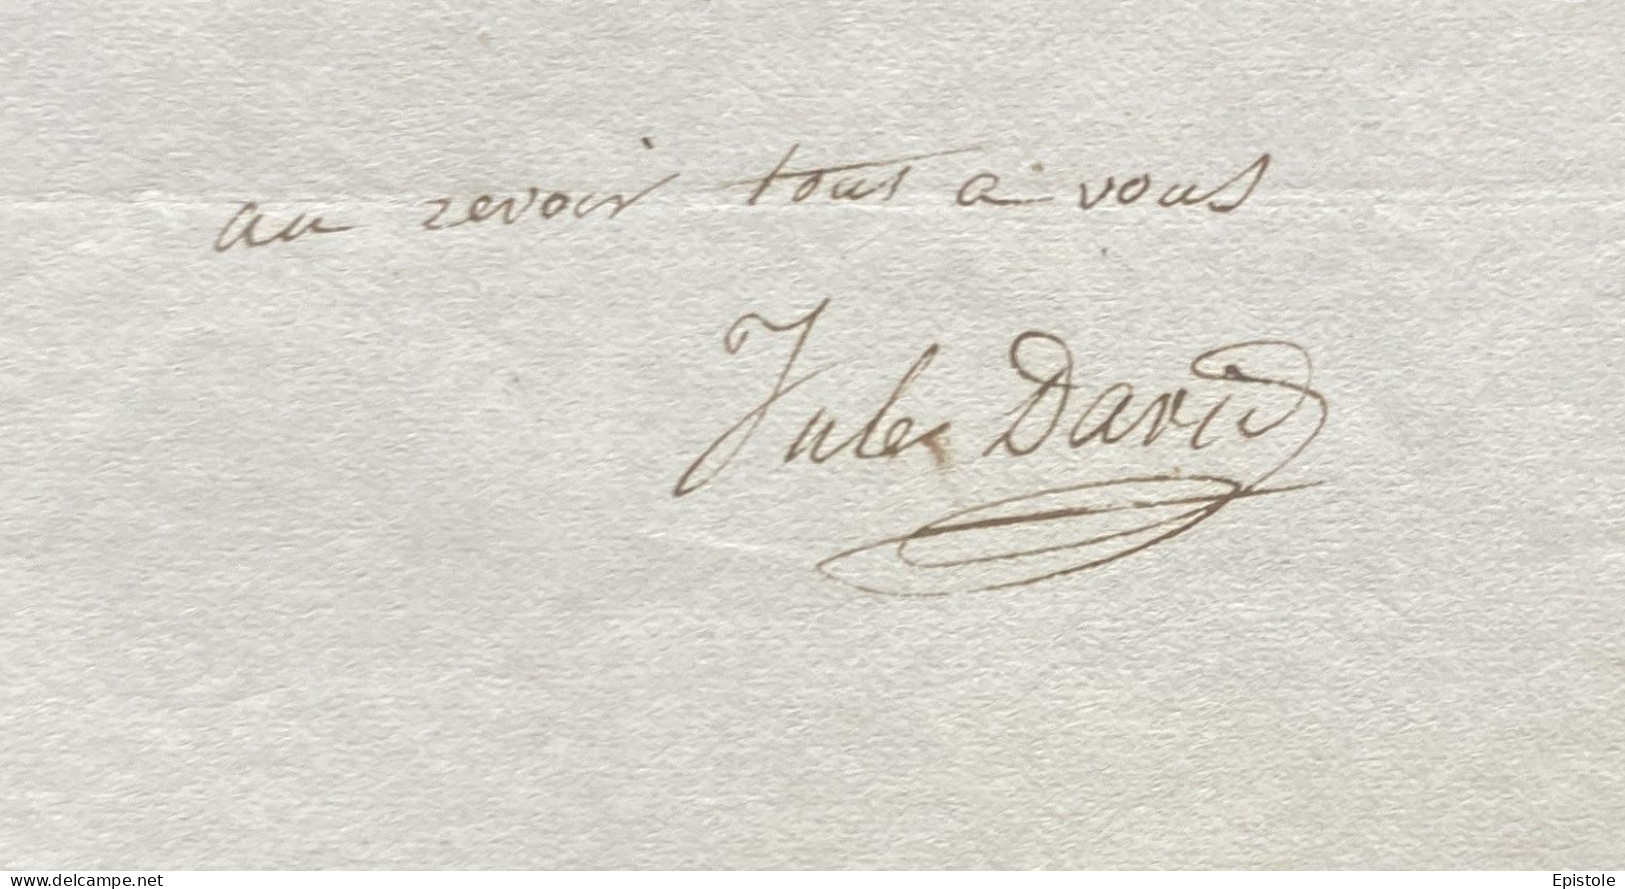 au revoir tout a vous
Jules David
www.delcampe.net
Epistole